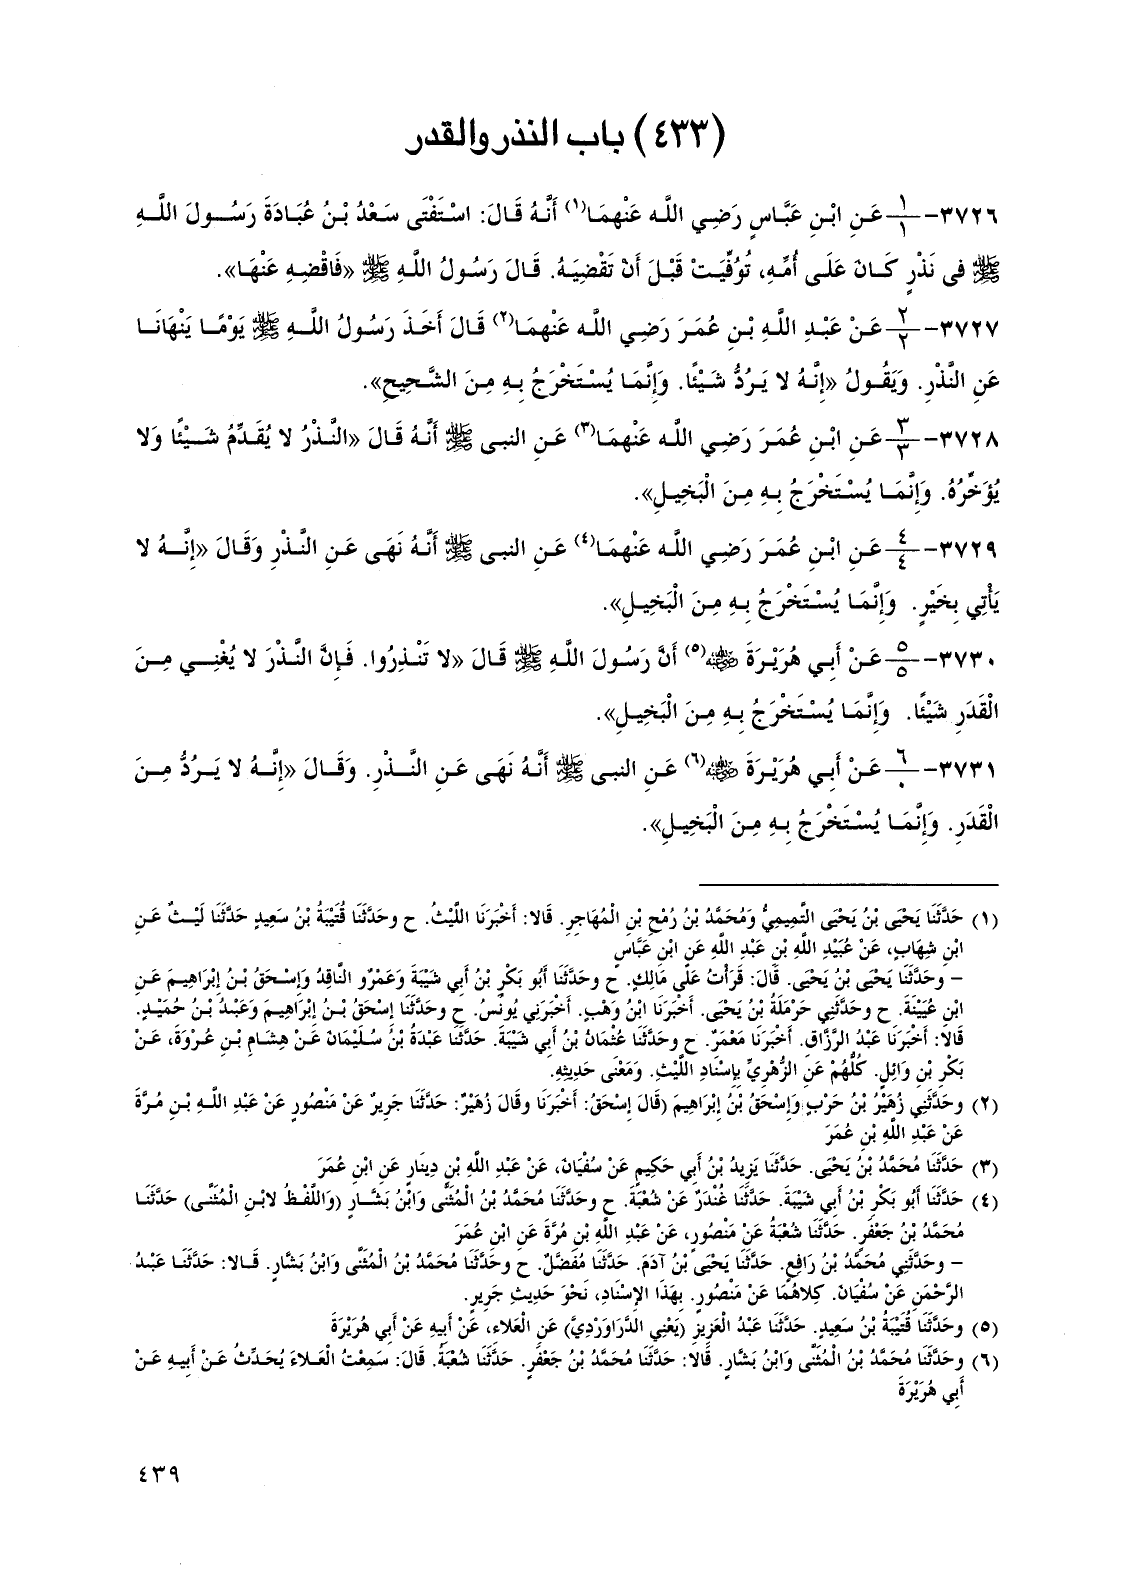 (٤٣٣) باب النذر والقدر
٣٧٢٦- ١/١ عَنِ ابْنِ عَبَّاسٍ رَضِي اللَّه عَنْهمَا(١) أَنَّهُ قَالَ: اسْتَفْتَى سَعْدُ بْنُ عُبَادَةَ رَسُولَ اللَّهِ
ﷺ فِى نَذْرٍ كَانَ عَلَى أُمِّهِ، تُوُفِّيَتْ قَبْلَ أَنْ تَقْضِيَهُ. قَالَ رَسُولُ اللَّهِ ﷺ «فَاقْضِهِ عَنْهَا».
٣٧٢٧- ٢/٢ عَنْ عَبْدِ اللَّهِ بْنِ عُمَرَ رَضِي اللَّه عَنْهمَا(٢) قَالَ أَخَذَ رَسُولُ اللَّهِ ﷺ يَوْمًا يَنْهَانَا
عَنِ النَّذْرِ. وَيَقُولُ «إِنَّهُ لا يَرُدُّ شَيْئًا. وَإِنَّمَا يُسْتَخْرَجُ بِهِ مِنَ الشَّحِيحِ».
٣٧٢٨- ٣/٣ عَنِ ابْنِ عُمَرَ رَضِي اللَّه عَنْهمَا(٣) عَنِ النبى ﷺ أَنَّهُ قَالَ «النَّذْرُ لا يُقَدِّمُ شَيْئًا وَلا
يُؤَخِّرُهُ. وَإِنَّمَا يُسْتَخْرَجُ بِهِ مِنَ الْبَخِيلِ».
٣٧٢٩- ٤/٤ عَنِ ابْنِ عُمَرَ رَضِي اللَّه عَنْهمَا(٤) عَنِ النبى ﷺ أَنَّهُ نَهَى عَنِ النَّذْرِ وَقَالَ «إِنَّهُ لا
يَأْتِي بِخَيْرٍ. وَإِنَّمَا يُسْتَخْرَجُ بِهِ مِنَ الْبَخِيلِ».
٣٧٣٠- ٥/٥ عَنْ أَبِي هُرَيْرَةَ ﷺ(٥) أَنَّ رَسُولَ اللَّهِ ﷺ قَالَ «لا تَنْذِرُوا. فَإِنَّ النَّذْرَ لا يُغْنِي مِنَ
الْقَدَرِ شَيْئًا. وَإِنَّمَا يُسْتَخْرَجُ بِهِ مِنَ الْبَخِيلِ».
٣٧٣١- ٦/٠ عَنْ أَبِي هُرَيْرَةَ ﷺ(٦) عَنِ النبى ﷺ أَنَّهُ نَهَى عَنِ النَّذْرِ. وَقَالَ «إِنَّهُ لا يَرُدُّ مِنَ
الْقَدَرِ. وَإِنَّمَا يُسْتَخْرَجُ بِهِ مِنَ الْبَخِيلِ».
(١) حَدَّثَنَا يَحْيَى بْنُ يَحْيَى التَّمِيمِيُّ وَمُحَمَّدُ بْنُ رُمْحِ بْنِ الْمُهَاجِرِ. قَالا: أَخْبَرَنَا اللَّيْثُ. ح وحَدَّثَنَا قُتَيْبَةُ بْنُ سَعِيدٍ حَدَّثَنَا لَيْثٌ عَنِ
ابْنِ شِهَابٍ، عَنْ عُبَيْدِ اللَّهِ بْنِ عَبْدِ اللَّهِ عَنِ ابْنِ عَبَّاسٍ
– وحَدَّثَنَا يَحْيَى بْنُ يَحْيَى. قَالَ: قَرَأْتُ عَلَى مَالِكٍ. ح وحَدَّثَنَا أَبُو بَكْرِ بْنُ أَبِي شَيْبَةَ وَعَمْرٌو النَّاقِدُ وَإِسْحَقُ بْنُ إِبْرَاهِيمَ عَنِ
ابْنِ عُيَيْنَةَ. ح وحَدَّثَنِي حَرْمَلَةُ بْنُ يَحْيَى. أَخْبَرَنَا ابْنُ وَهْبٍ. أَخْبَرَنِي يُونُسُ. ح وحَدَّثَنَا إِسْحَقُ بْنُ إِبْرَاهِيمَ وَعَبْدُ بْنُ حُمَيْدٍ.
قَالا: أَخْبَرَنَا عَبْدُ الرَّزَّاقِ. أَخْبَرَنَا مَعْمَرٌ. ح وحَدَّثَنَا عُثْمَانُ بْنُ أَبِي شَيْبَةَ. حَدَّثَنَا عَبْدَةُ بْنُ سُلَيْمَانَ عَنْ هِشَامِ بْنِ عُرْوَةَ، عَنْ
بَكْرِ بْنِ وَائِلٍ. كُلُّهُمْ عَنِ الزُّهْرِيِّ بِإِسْنَادِ اللَّيْثِ. وَمَعْنَى حَدِيثِهِ.
(٢) وحَدَّثَنِي زُهَيْرُ بْنُ حَرْبٍ وَإِسْحَقُ بْنُ إِبْرَاهِيمَ (قَالَ إِسْحَقُ: أَخْبَرَنَا وقَالَ زُهَيْرٌ: حَدَّثَنَا جَرِيرٌ عَنْ مَنْصُورٍ عَنْ عَبْدِ اللَّهِ بْنِ مُرَّةَ
عَنْ عَبْدِ اللَّهِ بْنِ عُمَرَ
(٣) حَدَّثَنَا مُحَمَّدُ بْنُ يَحْيَى. حَدَّثَنَا يَزِيدُ بْنُ أَبِي حَكِيمٍ عَنْ سُفْيَانَ، عَنْ عَبْدِ اللَّهِ بْنِ دِينَارٍ عَنِ ابْنِ عُمَرَ
(٤) حَدَّثَنَا أَبُو بَكْرِ بْنُ أَبِي شَيْبَةَ. حَدَّثَنَا غُنْدَرٌ عَنْ شُعْبَةَ. ح وحَدَّثَنَا مُحَمَّدُ بْنُ الْمُثَنَّى وَابْنُ بَشَّارٍ (وَاللَّفْظُ لابْنِ الْمُثَنَّى) حَدَّثَنَا
مُحَمَّدُ بْنُ جَعْفَرٍ. حَدَّثَنَا شُعْبَةُ عَنْ مَنْصُورٍ، عَنْ عَبْدِ اللَّهِ بْنِ مُرَّةَ عَنِ ابْنِ عُمَرَ
– وحَدَّثَنِي مُحَمَّدُ بْنُ رَافِعٍ. حَدَّثَنَا يَحْيَى بْنُ آدَمَ. حَدَّثَنَا مُفَضَّلٌ. ح وحَدَّثَنَا مُحَمَّدُ بْنُ الْمُثَنَّى وَابْنُ بَشَّارٍ. قَالا: حَدَّثَنَا عَبْدُ
الرَّحْمَنِ عَنْ سُفْيَانَ. كِلاهُمَا عَنْ مَنْصُورٍ. بِهَذَا الإِسْنَادِ، نَحْوَ حَدِيثِ جَرِيرٍ.
(٥) وحَدَّثَنَا قُتَيْبَةُ بْنُ سَعِيدٍ. حَدَّثَنَا عَبْدُ الْعَزِيزِ (يَعْنِي الدَّرَاوَرْدِيَّ) عَنِ الْعَلاءِ، عَنْ أَبِيهِ عَنْ أَبِي هُرَيْرَةَ
(٦) وحَدَّثَنَا مُحَمَّدُ بْنُ الْمُثَنَّى وَابْنُ بَشَّارٍ. قَالا: حَدَّثَنَا مُحَمَّدُ بْنُ جَعْفَرٍ. حَدَّثَنَا شُعْبَةُ. قَالَ: سَمِعْتُ الْعَلاءَ يُحَدِّثُ عَنْ أَبِيهِ عَنْ
أَبِي هُرَيْرَةَ
٤٣٩